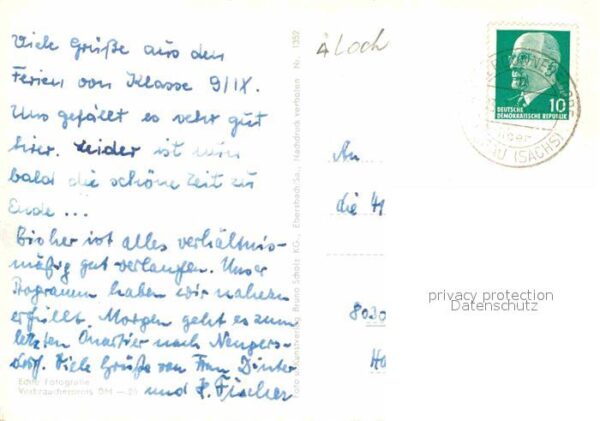 Viele Grüße aus den
Ferien von Klasse 9/IX.
Uns gefällt es sehr gut
hier. Leider ist nun
bald die schöne Zeit zu
Ende ...
Bisher ist alles verhältnis-
mäßig gut verlaufen. Unser
Programm haben wir nahezu
erfüllt. Morgen geht es zum
letzten Quartier nach Neugers-
dorf. Viele Grüße von Frau Dinter
und Fischer
Echte Fotografie
Verbraucherpreis DM
Bruno Scholz KG., Ebersbach/Sa., Nachdruck verboten Nr. 1352
Loch
10
DEUTSCHE
DEMOKRATISCHE REPUBLIK
(SACHS)
An
die
8030
privacy protection
Datenschutz